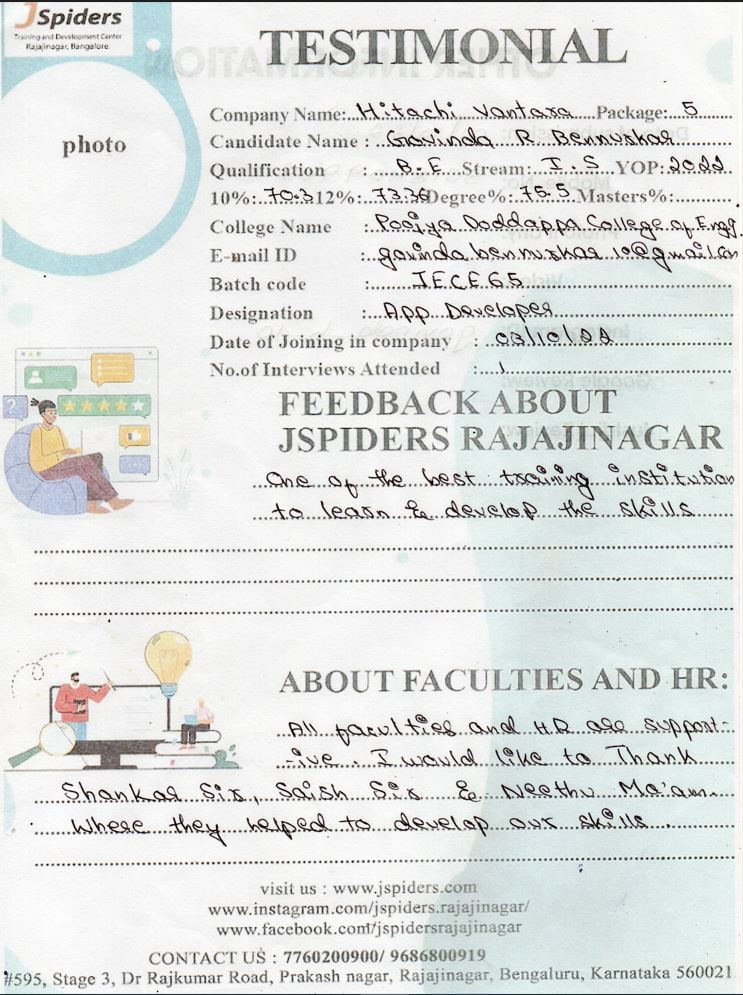 JSpiders
Training and Development Center
Rajajinagar, Bangalore.
TESTIMONIAL
photo
Company Name: Hitachi Vantara Package: 5
Candidate Name : Govinda R Bennurkar
Qualification : B.E Stream: I.S YOP: 2022
10%: 70.3 12%: 73.36 Degree%: 75.5 Masters%:
College Name : Poojya Doddappa College of Engg.
E-mail ID : govinda bennurkar 10@gmail.com
Batch code : JECE65
Designation : App Developer
Date of Joining in company : 03/10/22
No.of Interviews Attended : 1
FEEDBACK ABOUT
JSPIDERS RAJAJINAGAR
One of the best training institution
to learn & develop the skills
ABOUT FACULTIES AND HR:
All faculties and HR are support-
-ive. I would like to Thank
Shankar Sir, Saish Sir & Neethu Ma'am.
Where they helped to develop our skills.
visit us : www.jspiders.com
www.instagram.com/jspiders.rajajinagar/
www.facebook.com/jspidersrajajinagar
CONTACT US : 7760200900/ 9686800919
#595, Stage 3, Dr Rajkumar Road, Prakash nagar, Rajajinagar, Bengaluru, Karnataka 560021